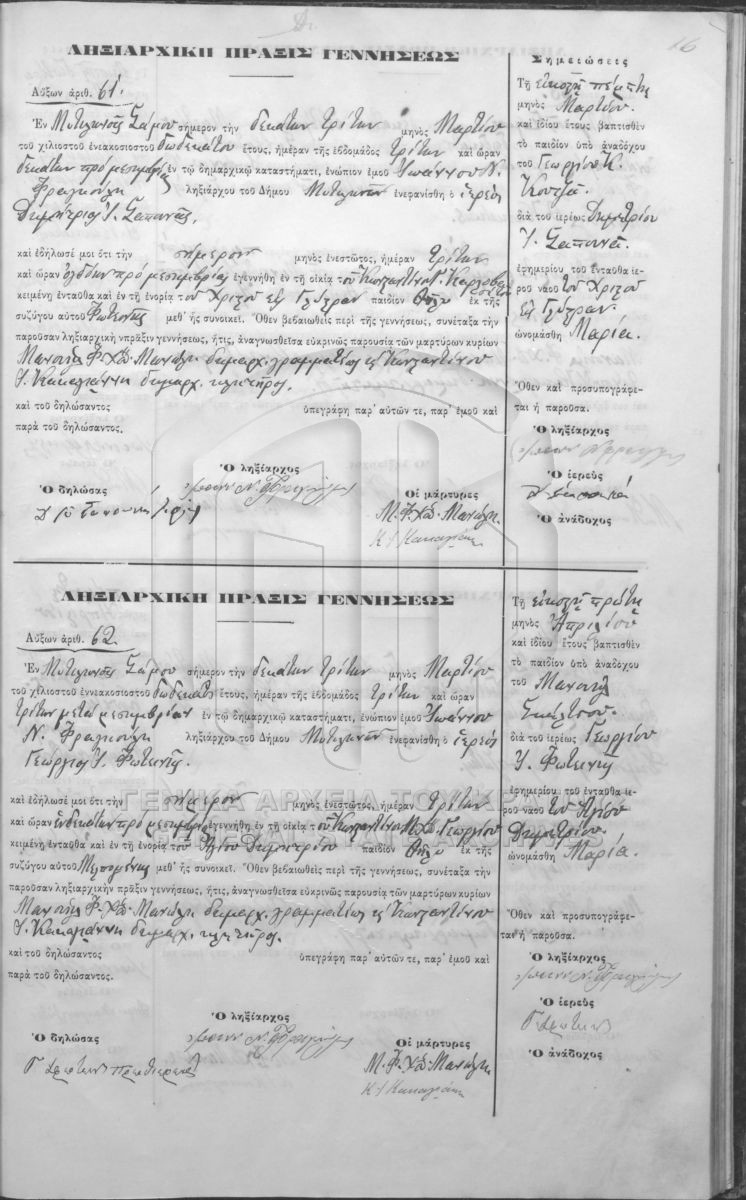 16
ΛΗΞΙΑΡΧΙΚΗ ΠΡΑΞΙΣ ΓΕΝΝΗΣΕΩΣ
Αὔξων ἀριθ. 61.
Ἐν Μυτιληνιοῖς Σάμου σήμερον τὴν δεκάτην τρίτην μηνὸς Μαρτίου
τοῦ χιλιοστοῦ ἐνεακοσιοστοῦ δωδεκάτου ἔτους, ἡμέραν τῆς ἑβδομάδος τρίτην καὶ ὥραν
δεκάτην πρὸ μεσημβρίας ἐν τῷ δημαρχικῷ καταστήματι, ἐνώπιον ἐμοῦ Ἰωάννου Ν.
Φραγκούλη ληξιάρχου τοῦ Δήμου Μυτιληνιῶν ἐνεφανίσθη ὁ ἱερεὺς
Δημήτριος Ἰ.
καὶ ἐδήλωσέ μοι ὅτι τὴν σήμερον μηνὸς ἐνεστῶτος, ἡμέραν τρίτην
καὶ ὥραν ὀγδόην πρὸ μεσημβρίας ἐγεννήθη ἐν τῇ οἰκίᾳ τοῦ Κωνσταντίνου
κειμένῃ ἐνταῦθα καὶ ἐν τῇ ἐνορίᾳ τοῦ Χριστοῦ εἰς παιδίον θῆλυ ἐκ τῆς
συζύγου αὐτοῦ Φωτεινῆς μεθ' ἧς συνοικεῖ. Ὅθεν βεβαιωθεὶς περὶ τῆς γεννήσεως, συνέταξα τὴν
παροῦσαν ληξιαρχικὴν πρᾶξιν γεννήσεως, ἥτις, ἀναγνωσθεῖσα εὐκρινῶς παρουσίᾳ τῶν μαρτύρων κυρίων
Μανουὴλ Φ. Χδ. Μανώλη δημαρχ. γραμματέως καὶ Κωνσταντίνου
Ἰ. Κακαγιάννη δημαρχ. κλητῆρος.
καὶ τοῦ δηλώσαντος ὑπεγράφη παρ' αὐτῶν τε, παρ' ἐμοῦ καὶ
παρὰ τοῦ δηλώσαντος.
Ὁ ληξίαρχος
Ὁ δηλώσας
Οἱ μάρτυρες
Μ. Φ. Χδ. Μανώλης
Κ Ἰ Κακαγιάννης
Σημειώσεις
Τῇ εἰκοστῇ πέμπτῃ
μηνὸς Μαρτίου
καὶ ἰδίου ἔτους βαπτισθὲν
τὸ παιδίον ὑπὸ ἀναδόχου
τοῦ Γεωργίου Κ.
διὰ τοῦ ἱερέως Δημητρίου
Ἰ.
ἐφημερίου τοῦ ἐνταῦθα ἱε-
ροῦ ναοῦ τοῦ Χριστοῦ
εἰς
ὠνομάσθη Μαρία.
Ὅθεν καὶ προσυπογράφε-
ται ἡ παροῦσα.
Ὁ ληξίαρχος
Ὁ ἱερεὺς
Ὁ ἀνάδοχος
ΛΗΞΙΑΡΧΙΚΗ ΠΡΑΞΙΣ ΓΕΝΝΗΣΕΩΣ
Αὔξων ἀριθ. 62.
Ἐν Μυτιληνιοῖς Σάμου σήμερον τὴν δεκάτην τρίτην μηνὸς Μαρτίου
τοῦ χιλιοστοῦ ἐννεακοσιοστοῦ δωδεκάτου ἔτους, ἡμέραν τῆς ἑβδομάδος τρίτην καὶ ὥραν
τρίτην μετὰ μεσημβρίαν ἐν τῷ δημαρχικῷ καταστήματι, ἐνώπιον ἐμοῦ Ἰωάννου
Ν. Φραγκούλη ληξιάρχου τοῦ Δήμου Μυτιληνιῶν ἐνεφανίσθη ὁ ἱερεὺς
Γεώργιος Ἰ. Φωτεινῆς.
καὶ ἐδήλωσέ μοι ὅτι τὴν σήμερον μηνὸς ἐνεστῶτος, ἡμέραν τρίτην
καὶ ὥραν ἑνδεκάτην πρὸ μεσημβρίας ἐγεννήθη ἐν τῇ οἰκίᾳ τοῦ Κωνσταντίνου Χδ. Γεωργίου
κειμένῃ ἐνταῦθα καὶ ἐν τῇ ἐνορίᾳ τοῦ Ἁγίου Δημητρίου παιδίον θῆλυ ἐκ τῆς
συζύγου αὐτοῦ Μελπομένης μεθ' ἧς συνοικεῖ. Ὅθεν βεβαιωθεὶς περὶ τῆς γεννήσεως, συνέταξα τὴν
παροῦσαν ληξιαρχικὴν πρᾶξιν γεννήσεως, ἥτις, ἀναγνωσθεῖσα εὐκρινῶς παρουσίᾳ τῶν μαρτύρων κυρίων
Μανουὴλ Φ. Χδ. Μανώλη δημαρχ. γραμματέως καὶ Κωνσταντίνου
Ἰ. Κακαγιάννη δημαρχ. κλητῆρος.
καὶ τοῦ δηλώσαντος ὑπεγράφη παρ' αὐτῶν τε, παρ' ἐμοῦ καὶ
παρὰ τοῦ δηλώσαντος.
Ὁ ληξίαρχος
Ὁ δηλώσας
Οἱ μάρτυρες
Μ. Φ. Χδ. Μανώλης
Κ Ἰ Κακαγιάννης
Τῇ εἰκοστῇ πρώτῃ
μηνὸς Ἀπριλίου
καὶ ἰδίου ἔτους βαπτισθὲν
τὸ παιδίον ὑπὸ ἀναδόχου
τοῦ Μανουὴλ
διὰ τοῦ ἱερέως Γεωργίου
Ἰ. Φωτεινῆ
ἐφημερίου τοῦ ἐνταῦθα ἱε-
ροῦ ναοῦ τοῦ Ἁγίου
Δημητρίου
ὠνομάσθη Μαρία.
Ὅθεν καὶ προσυπογράφε-
ται ἡ παροῦσα.
Ὁ ληξίαρχος
Ὁ ἱερεὺς
Ὁ ἀνάδοχος